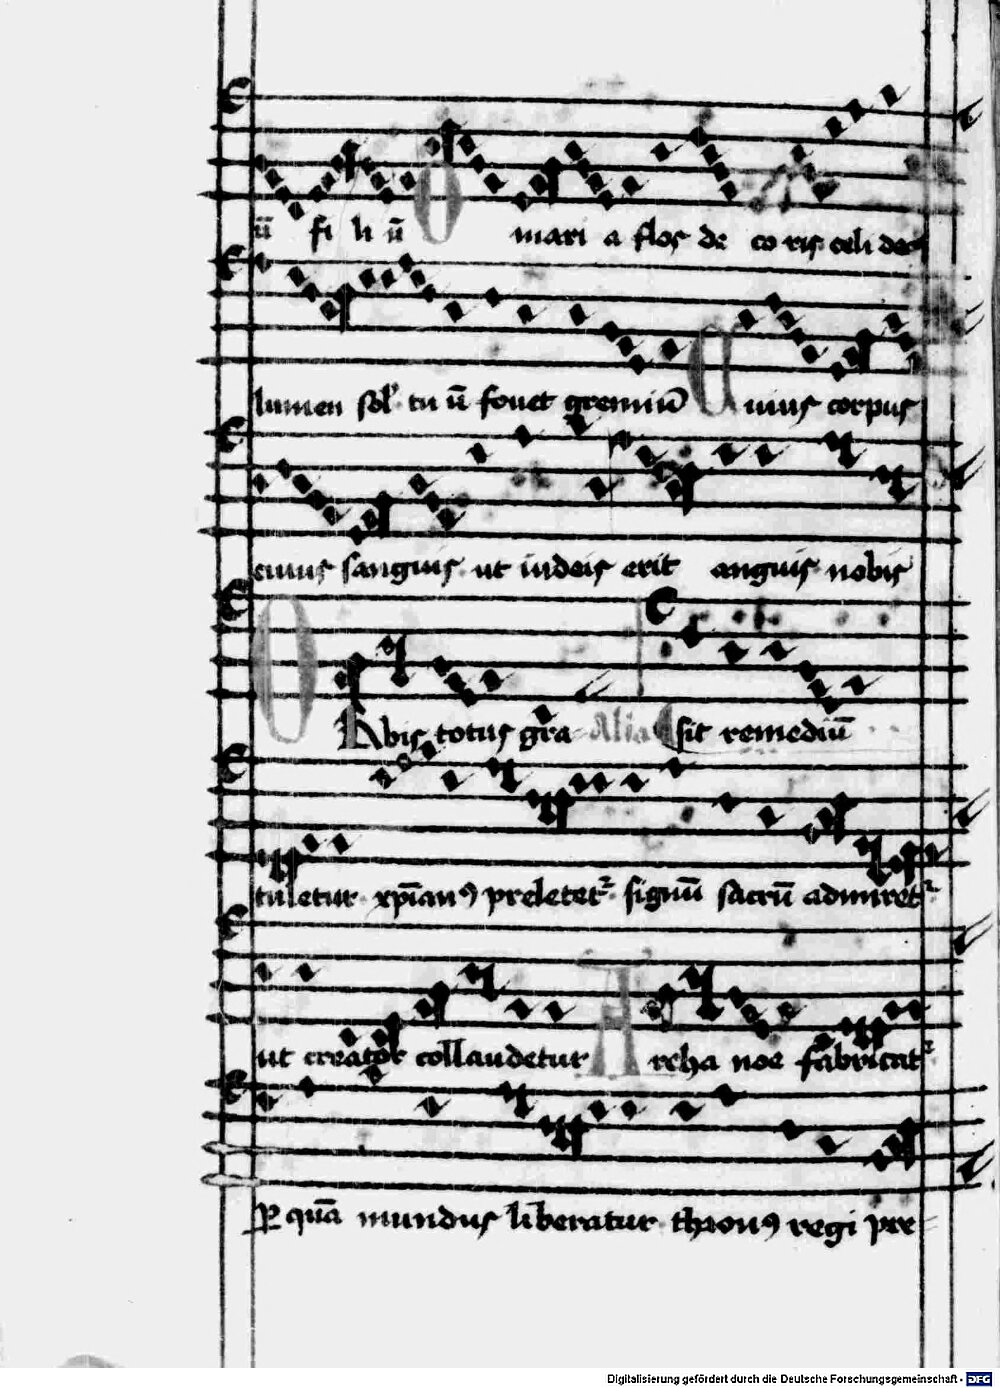 ū fi li ū O mari a flos de co ris celi dec
lumen sol' tu ū fouet gremiū C uius corpus
cuius sanguis ut iudeis erit anguis nobis
O Rbis totus gra Alia sit remediū
tuletur xp̄ianꝰ preletet᷑ signū sacrū admiret᷑
ut creator collaudetur A rcha noe fabricat᷑
ꝑ quā mundus liberatur thronꝰ regi pre
Digitalisierung gefördert durch die Deutsche Forschungsgemeinschaft - DFG